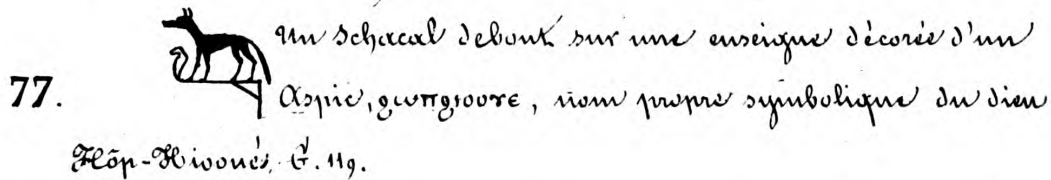 Un schacal debout sur une enseigne décorée d'un
77. Aspic, ϩⲱⲡϩⲓⲟⲟⲩⲉ, nom propre symbolique du dieu
Hôp-Hiooué, G. 119.